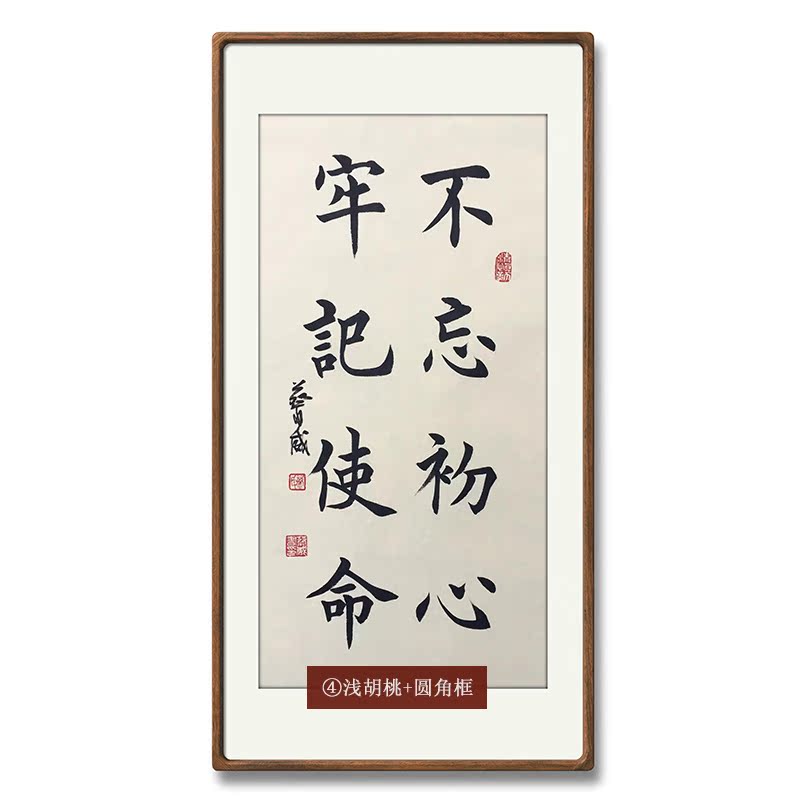 不忘初心
牢記使命
④浅胡桃+圆角框